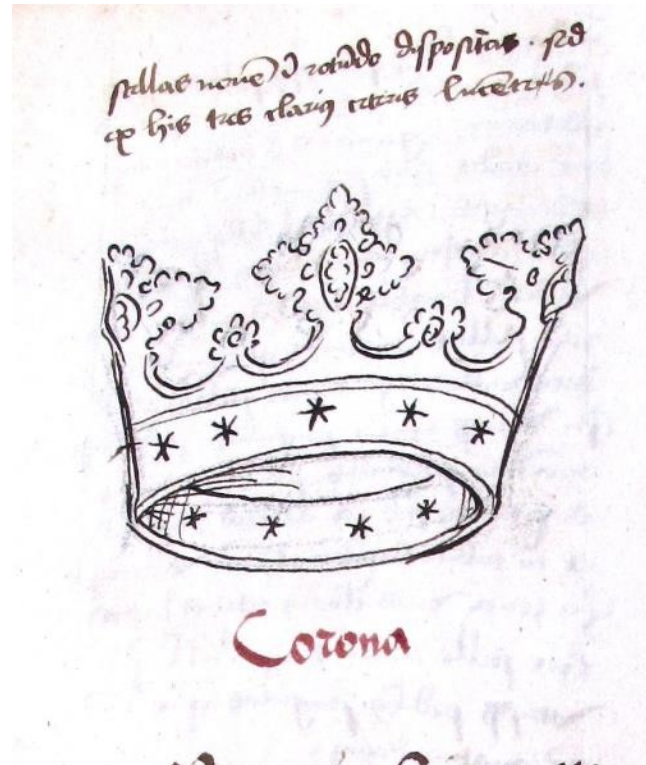 stellas novē ī rotūdo dispositas. sed
ex his tres clariꝰ ceteris lucētes.
Corona